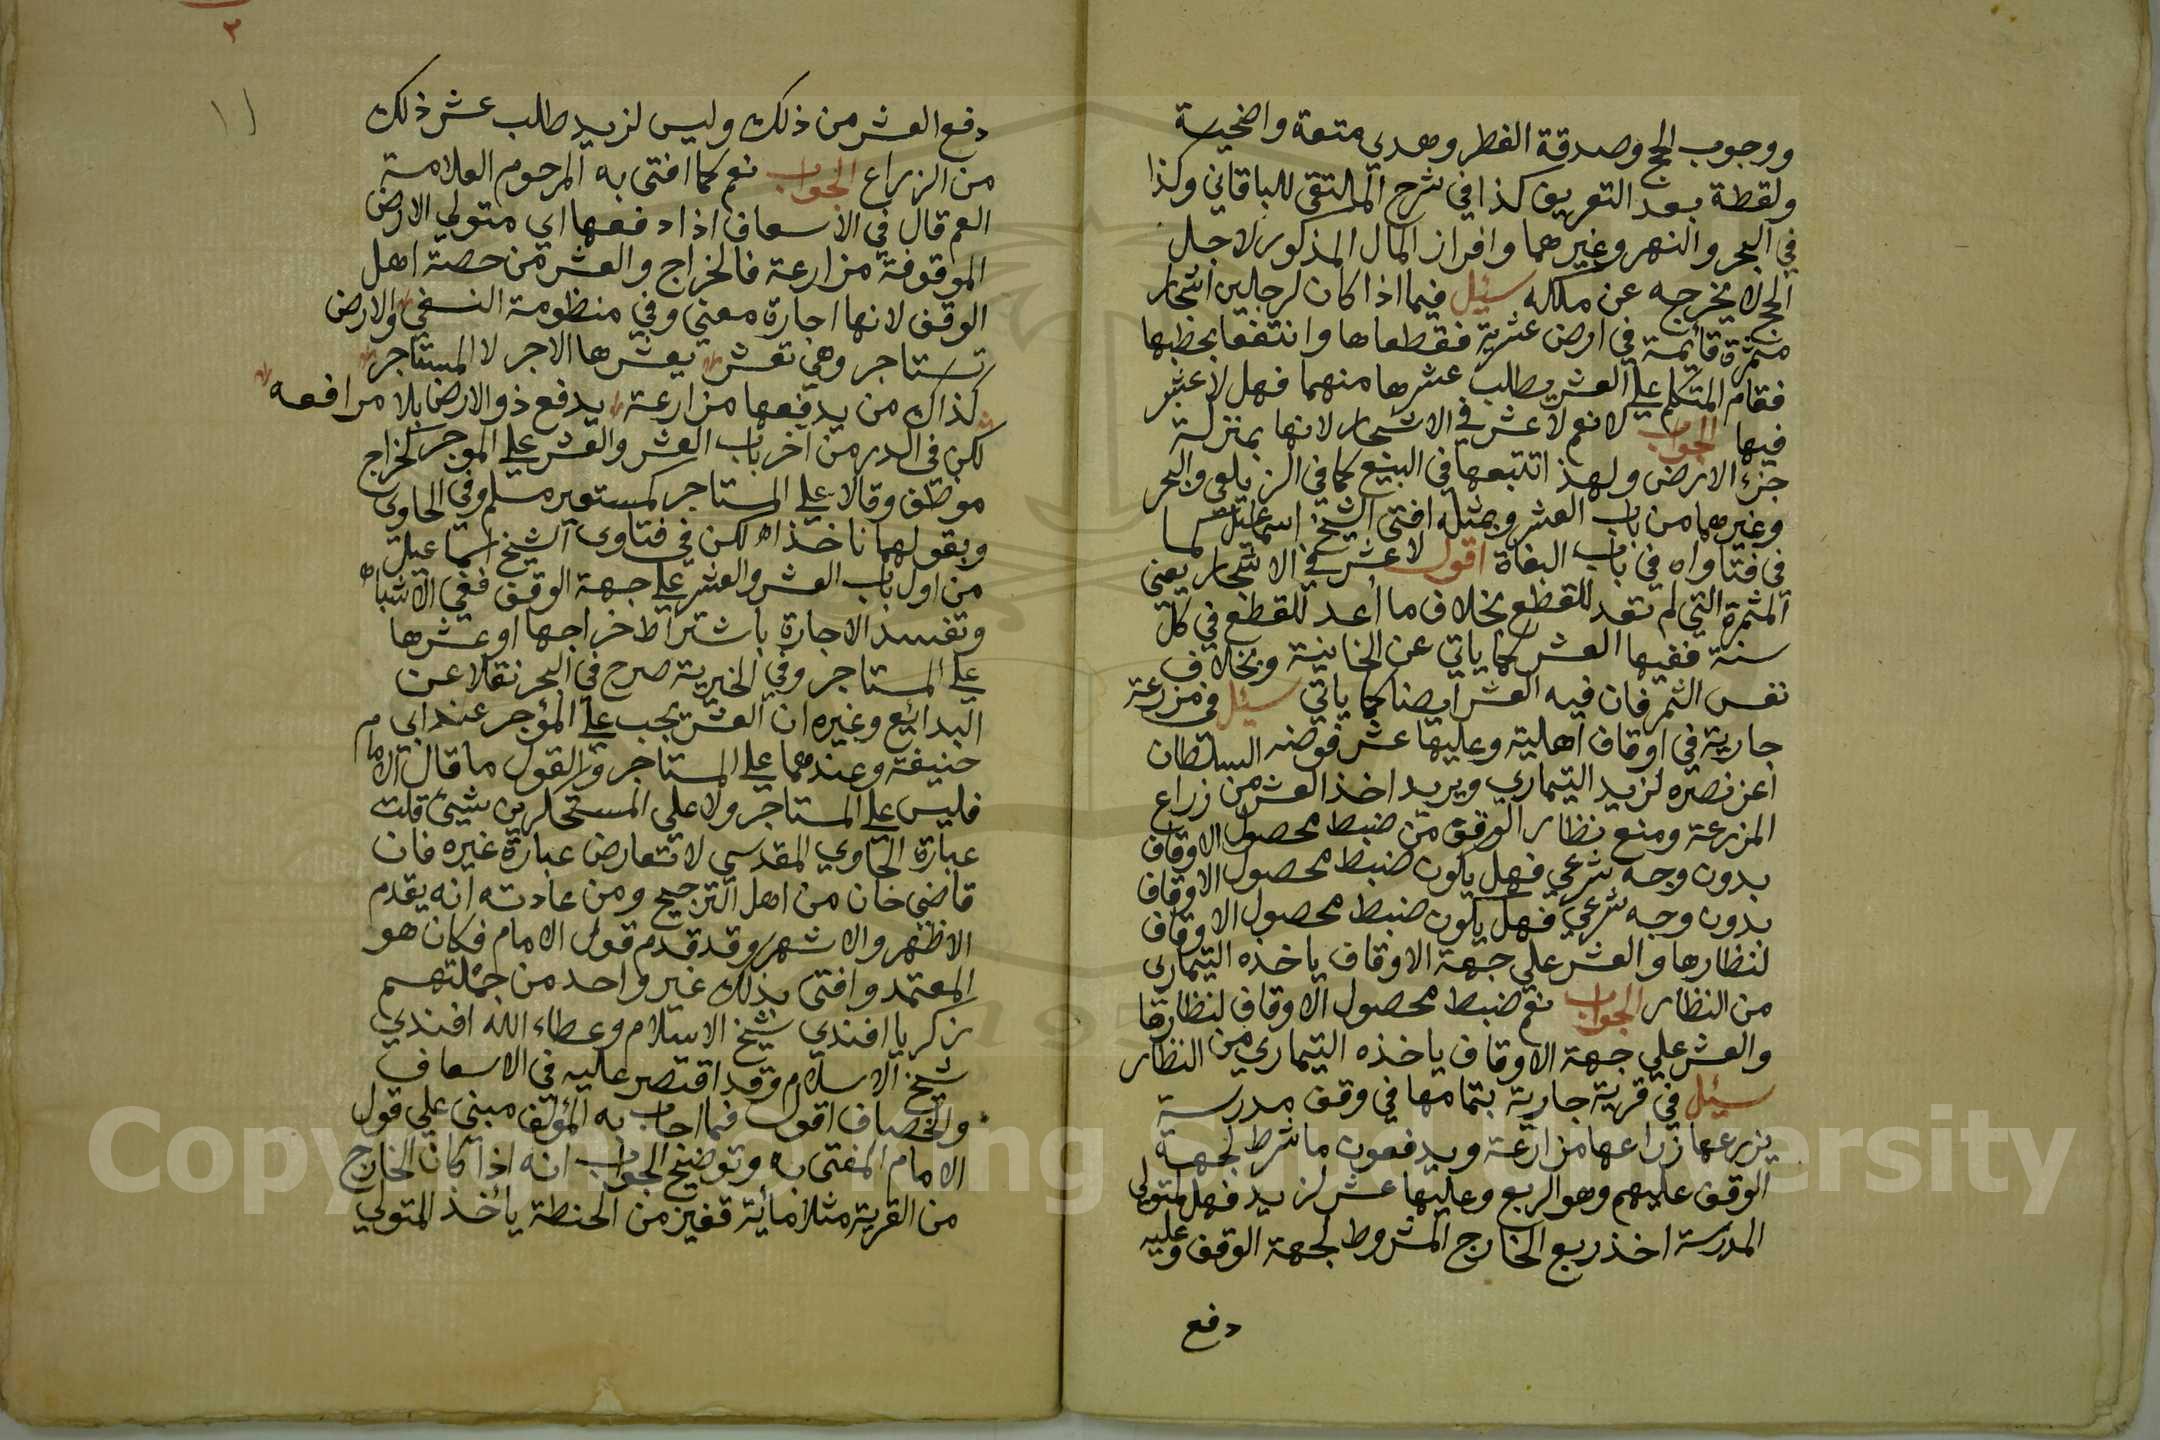 ووجوب الحج وصدقة الفطر وهدي متعة واضحية
ولقطة بعد التعريف كذا في شرح الملتقى للباقاني وكذا
في البحر والنهر وغيرهما وافراز المال المذكور لاجل
الحج لا يخرجه عن ملكه سئل فيما اذا كان لرجلين اشجار
مثمرة قائمة في ارض عشرية فقطعاها وانتفعا بحطبها
فقام المتكلم على العشر يطلب عشرها منهما فهل لا عشر
فيها الجواب لا نعم لا عشر في الاشجار لانها بمنزلة
جزء الارض ولهذا تتبعها في البيع كما في الزيلعي والبحر
وغيرهما من باب العشر وبمثله افتى الشيخ اسماعيل كما
في فتاواه في باب البغاة اقول لا عشر في الاشجار يعني
المثمرة التي لم تعد للقطع بخلاف ما اعد للقطع في كل
سنة ففيها العشر كما ياتي عن الخانية وبخلاف
نفس الثمر فان فيه العشر ايضا كما ياتي سئل في مزرعة
جارية في اوقاف اهلية وعليها عشر فوضه السلطان
اعز نصره لزيد التيماري ويريد اخذ العشر من زراع
المزرعة ومنع نظار الوقف من ضبط محصول الاوقاف
بدون وجه شرعي فهل يكون ضبط محصول الاوقاف
بدون وجه شرعي فهل يكون ضبط محصول الاوقاف
لنظارها والعشر على جهة الاوقاف ياخذه التيماري
من النظار الجواب نعم ضبط محصول الاوقاف لنظارها
والعشر على جهة الاوقاف ياخذه التيماري من النظار
سئل في قرية جارية بتمامها في وقف مدرسة
يزرعها زراعها مزارعة ويدفعون ما شرط لجهة
الوقف عليهم وهو الربع وعليها عشر لزيد فهل لمتولي
المدرسة اخذ ربع الخارج المشروط لجهة الوقف وعليه
دفع
٢
١١
دفع العشر من ذلك وليس لزيد طلب عشر ذلك
من الزراع الجواب نعم كما افتى به المرحوم العلامة
العم قال في الاسعاف اذا دفعها اي متولي الارض
الموقوفة مزارعة فالخراج والعشر من حصة اهل
الوقف لانها اجارة معنى وفي منظومة النسفي والارض
تستاجر وهي تعشر يعشرها الاجر لا المستاجر
كذاك من يدفعها مزارعة يدفع ذو الارض بلا مرافعه
لكن في الدر من آخر باب العشر والعشر على الموجر كخراج
موظف وقالا على المستاجر كمستعير مسلم وفي الحاوي
وبقولهما ناخذ اه لكن في فتاوى الشيخ اسماعيل
من اول باب العشر والعشر على جهة الوقف ففي الاشباه
وتفسد الاجارة باشتراط خراجها او عشرها
على المستاجر وفي الخيرية صرح في البحر نقلا عن
البدائع وغيره ان العشر يجب على المؤجر عند ابي
حنيفة وعندهما على المستاجر والقول ما قال الامام
فليس على المستاجر ولا على المستحكرين شيئ قلت
عبارة الحاوي المقدسي لا تعارض عبارة غيره فان
قاضي خان من اهل الترجيح ومن عادته انه يقدم
الاظهر والاشهر وقد قدم قول الامام فكان هو
المعتمد وافتى بذلك غير واحد من جملتهم
زكريا افندي شيخ الاسلام وعطاء الله افندي
شيخ الاسلام وقد اقتصر عليه في الاسعاف
والخصاف اقول فما اجاب به المؤلف مبني على قول
الامام المفتى به وتوضيح الجواب انه اذا كان الخارج
من القرية مثلا مائة قفيز من الحنطة ياخذ المتولي